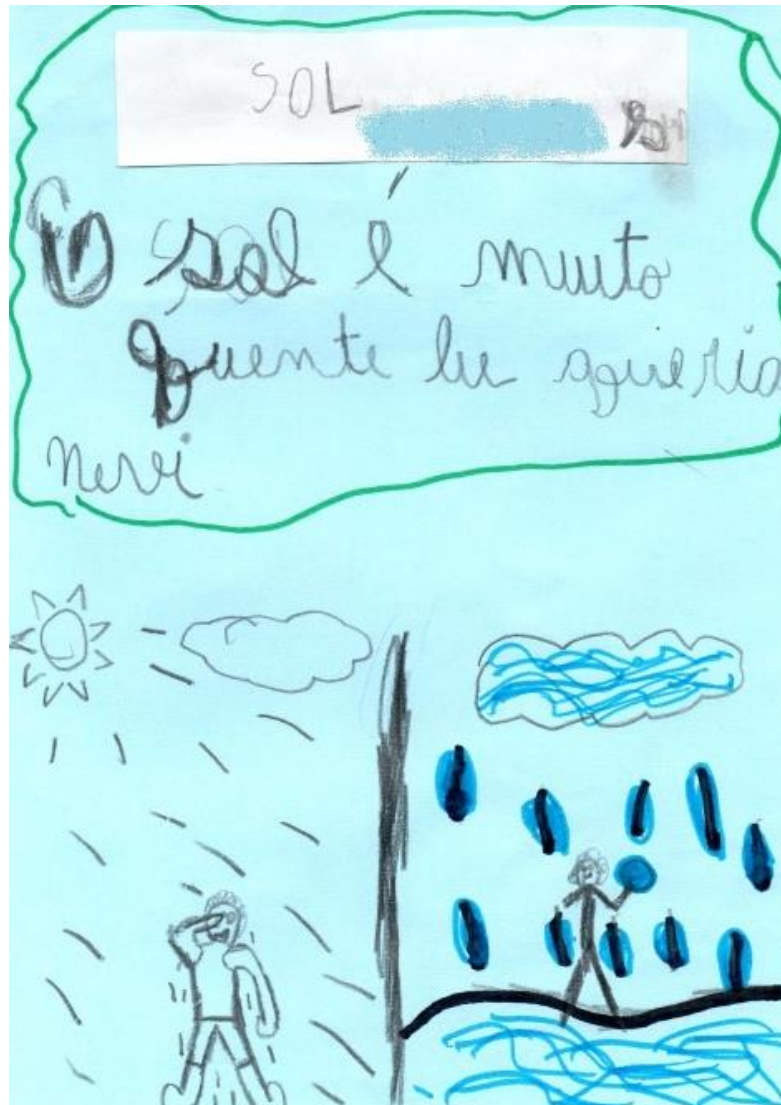 SOL
O sol é muito
quente eu queria
nevi